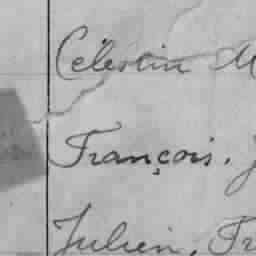 Célestin M
François. J
Julien. Fr